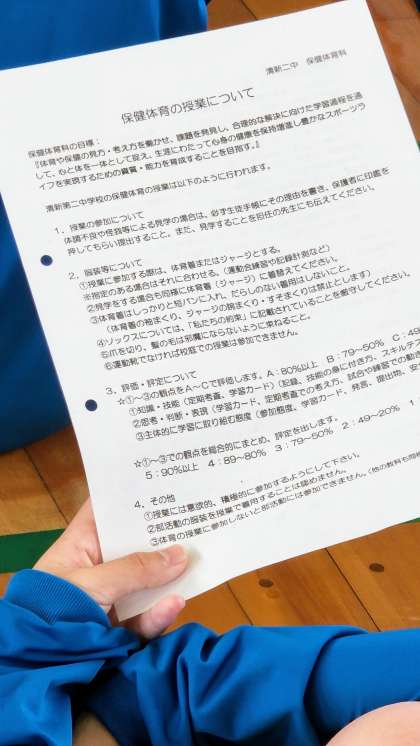 清新二中　保健体育科
保健体育の授業について
保健体育科の目標：
『体育や保健の見方・考え方を働かせ、課題を発見し、合理的な解決に向けた学習過程を通
して、心と体を一体として捉え、生涯にわたって心身の健康を保持増進し豊かなスポーツラ
イフを実現するための資質・能力を育成することを目指す。』
清新第二中学校の保健体育の授業は以下のように行われます。
1．授業の参加について
体調不良や怪我等による見学の場合は、必ず生徒手帳にその理由を書き、保護者に印鑑を
押してもらい提出すること。また、見学することを担任の先生にも伝えてください。
2．服装等について
①授業に参加する際は、体育着またはジャージとする。
※指定のある場合はそれに合わせる。（運動会練習や記録計測など）
②見学をする場合も同様に体育着（ジャージ）に着替えてください。
③体育着はしっかりと短パンに入れ、だらしのない着用はしないこと。
（体育着の袖まくり、ジャージの腕まくり・すそまくりは禁止とします）
④ソックスについては、「私たちの約束」に記載されていることを厳守してください。
⑤爪を切り、髪の毛は邪魔にならないように束ねること。
⑥運動靴でなければ校庭での授業は参加できません。
3．評価・評定について
☆①～③の観点をA～Cで評価します。A：80％以上　B：79～50％　C：49
①知識・技能（定期考査、学習カード）（記録、技能の身に付き方、スキルテス
②思考・判断・表現（学習カード、定期考査での考え方、試合や練習での動き
③主体的に学習に取り組む態度（参加態度、学習カード、発言、提出物、安
☆①～③での観点を総合的にまとめ、評定を出します。
5：90％以上　4：89～80％　3：79～50％　2：49～20％　1：
4．その他
①授業には意欲的、積極的に参加するようにして下さい。
②部活動の服装を授業で着用することは認めません。
③体育の授業に参加しないと部活動には参加できません。（他の教科も同様